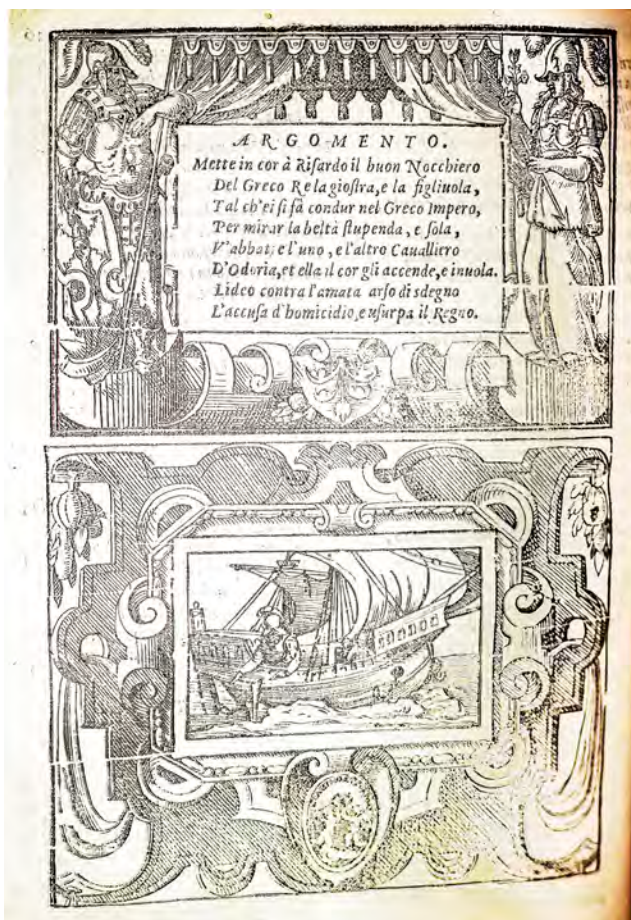 ARGOMENTO.
Mette in cor à Risardo il buon Nocchiero
Del Greco Re la giostra, e la figliuola,
Tal ch'ei si fà condur nel Greco Impero,
Per mirar la beltà stupenda, e sola,
V'abbat; e l'uno, e l'altro Cavalliero
D'Odoria, et ella il cor gli accende, e invola.
Lideo contra l'amata arso di sdegno
L'accusa d'homicidio, e usurpa il Regno.